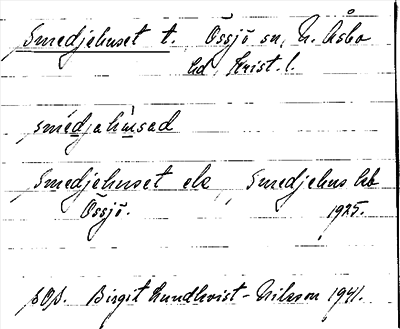 Smedjehuset t. Össjö sn, N. Åsbo
hd, Krist. l.
smédjahùsad
Smedjehuset ek, Smedjehus hb
Össjö. 1925.
SOS. Birgit Lundkvist-Nilsson 1941.